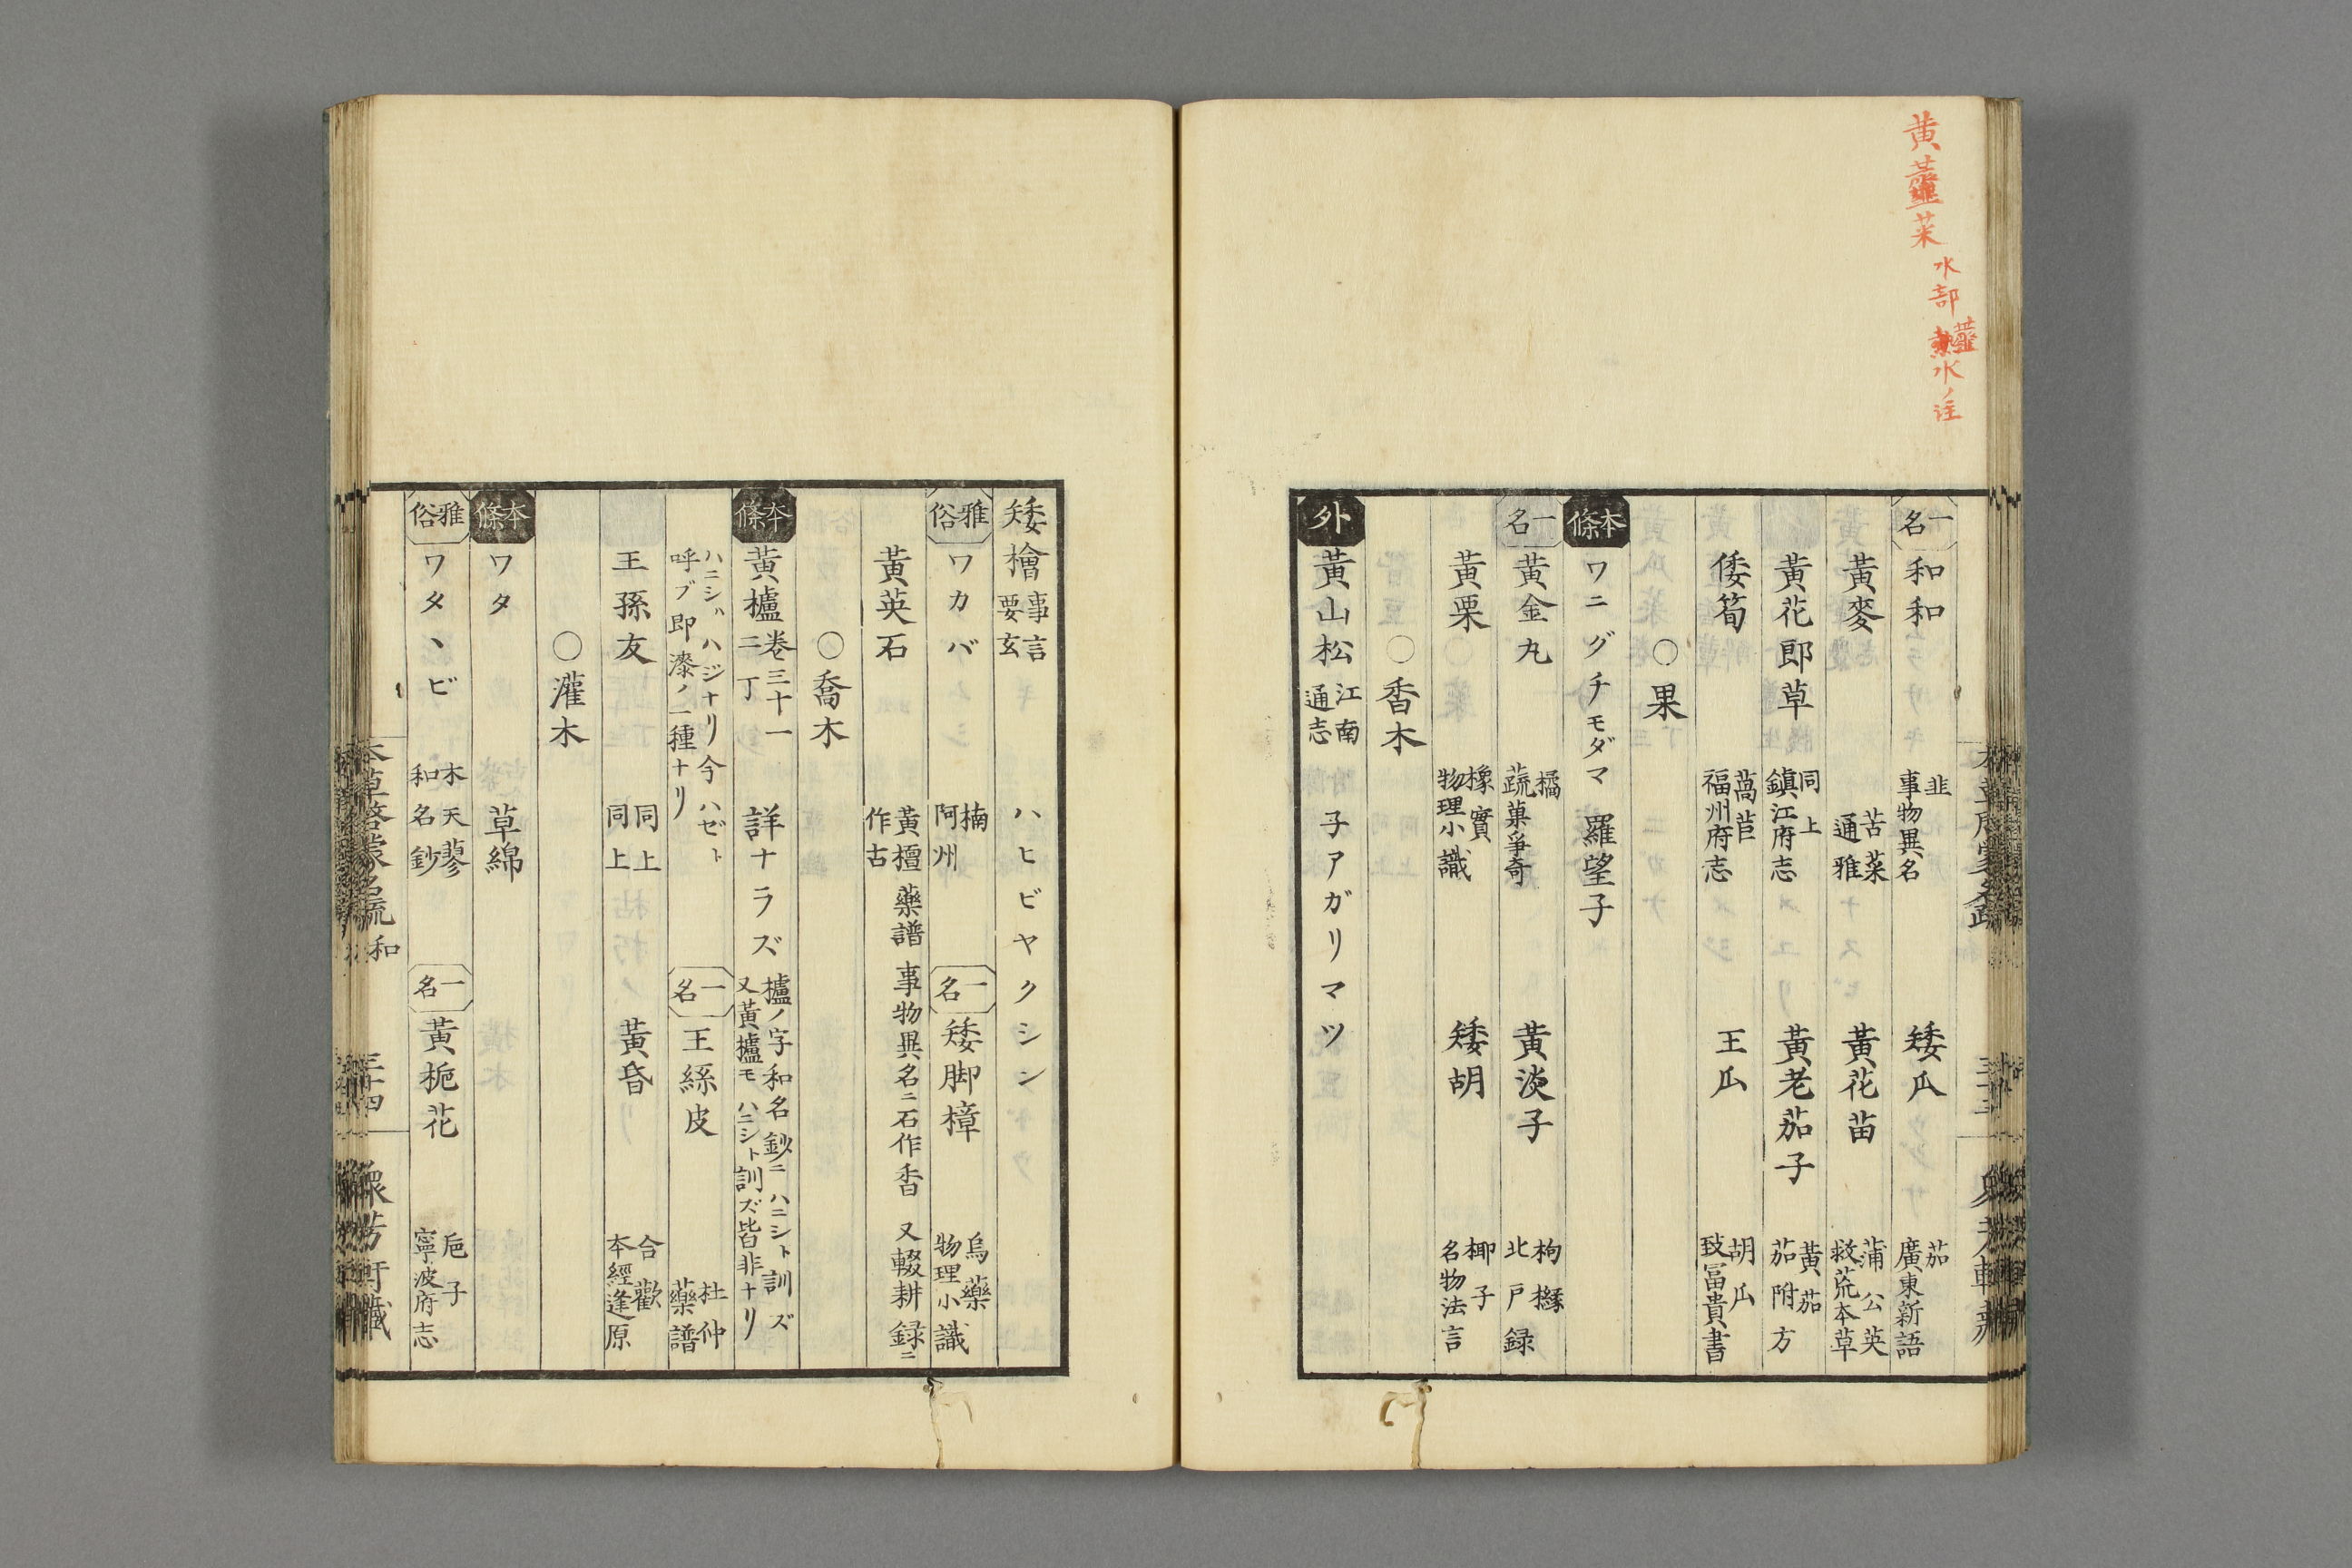 黄虀菜 水部 虀水ノ註
一名 和和 韭 事物異名 矮瓜 茄 廣東新語
黃麥 苦菜 通雅 黃花苗 蒲公英 救荒本草
黃花郎草 同上 鎮江府志 黃老茄子 黃茄 茄附方
倭筍 萵苣 福州府志 王瓜 胡瓜 致冨貴書
〇果
本條 ワニグチモダマ 羅望子
一名 黃金丸 橘 蔬菓爭奇 黃淡子 枸櫞 北戸録
黃栗 橡實 物理小識 矮胡 椰子 名物法言
〇香木
外 黃山松 江南通志 子アガリマツ
矮檜 事言要玄 ハヒビヤクシン
雅俗 ワカバ 楠 阿州 一名 矮脚樟 烏藥 物理小識
黃英石 黃檀 作古 藥譜 事物異名ニ石作香 又輟耕録ニ
〇喬木
本條 黃櫨 卷三十一 二丁 詳ナラズ 櫨ノ字和名鈔ニハニシト訓ズ 又黃櫨モハニシト訓ズ皆非ナリ
ハニシハハジナリ今ハゼト呼ブ即漆ノ一種ナリ 一名 王絲皮 杜仲 藥譜
王孫友 同上 同上 黃昏 合歡 本經逢原
〇灌木
本條 ワタ 草綿
雅俗 ワタヽビ 木天蓼 和名鈔 一名 黃梔花 巵子 寧波府志
本草啓蒙名疏 和 三十四